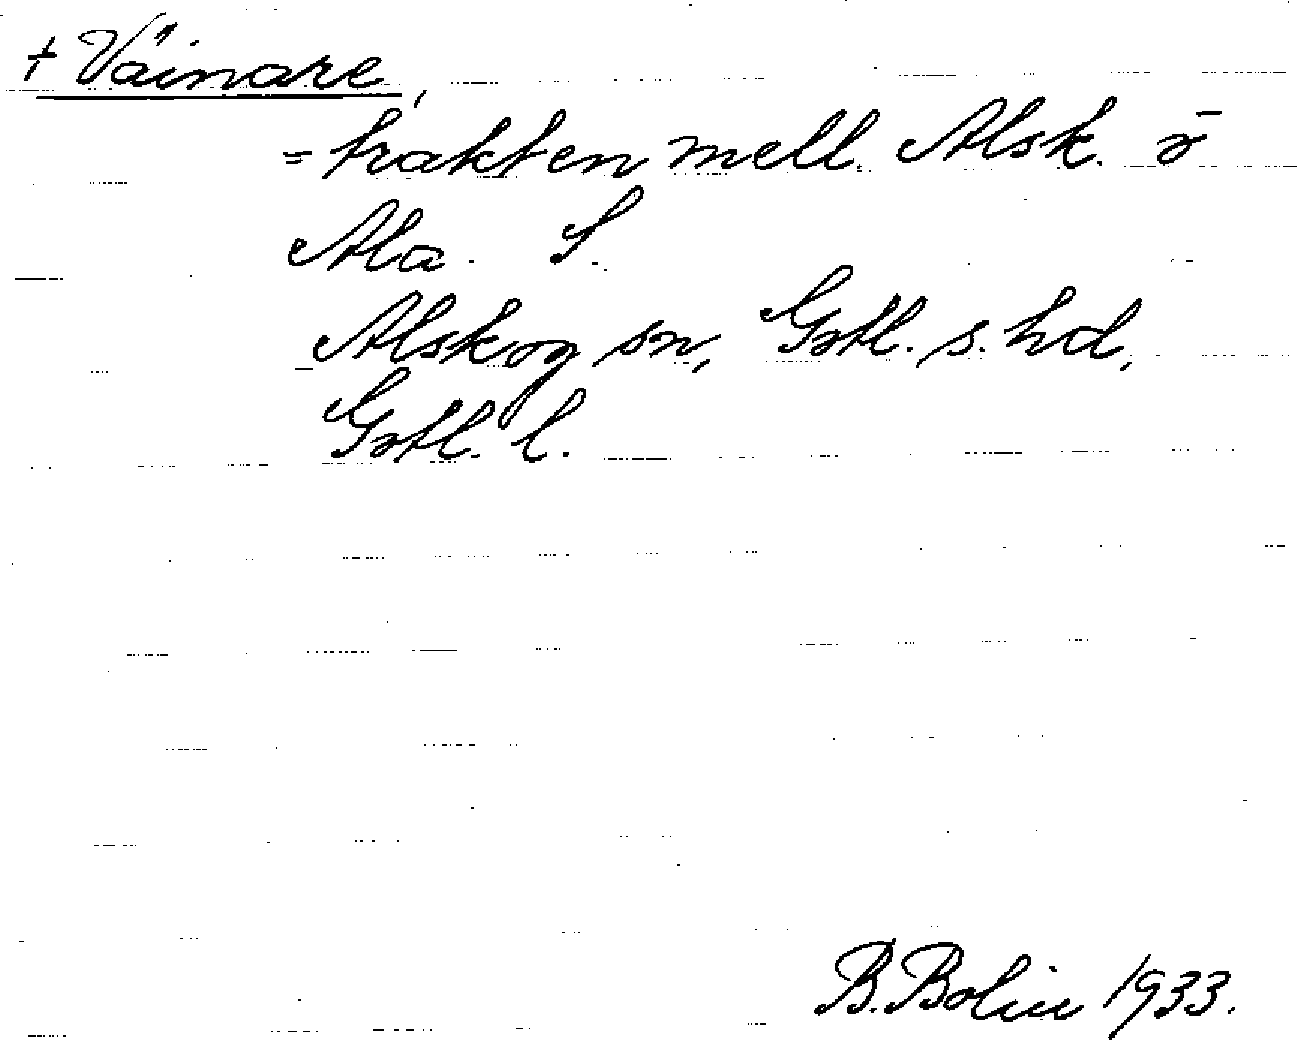 + Väinare,
= trakten mell. Alsk. o
Ala. S.
Alskog sn, Gotl. s. hd,
Gotl. l.
B. Bolin 1933.